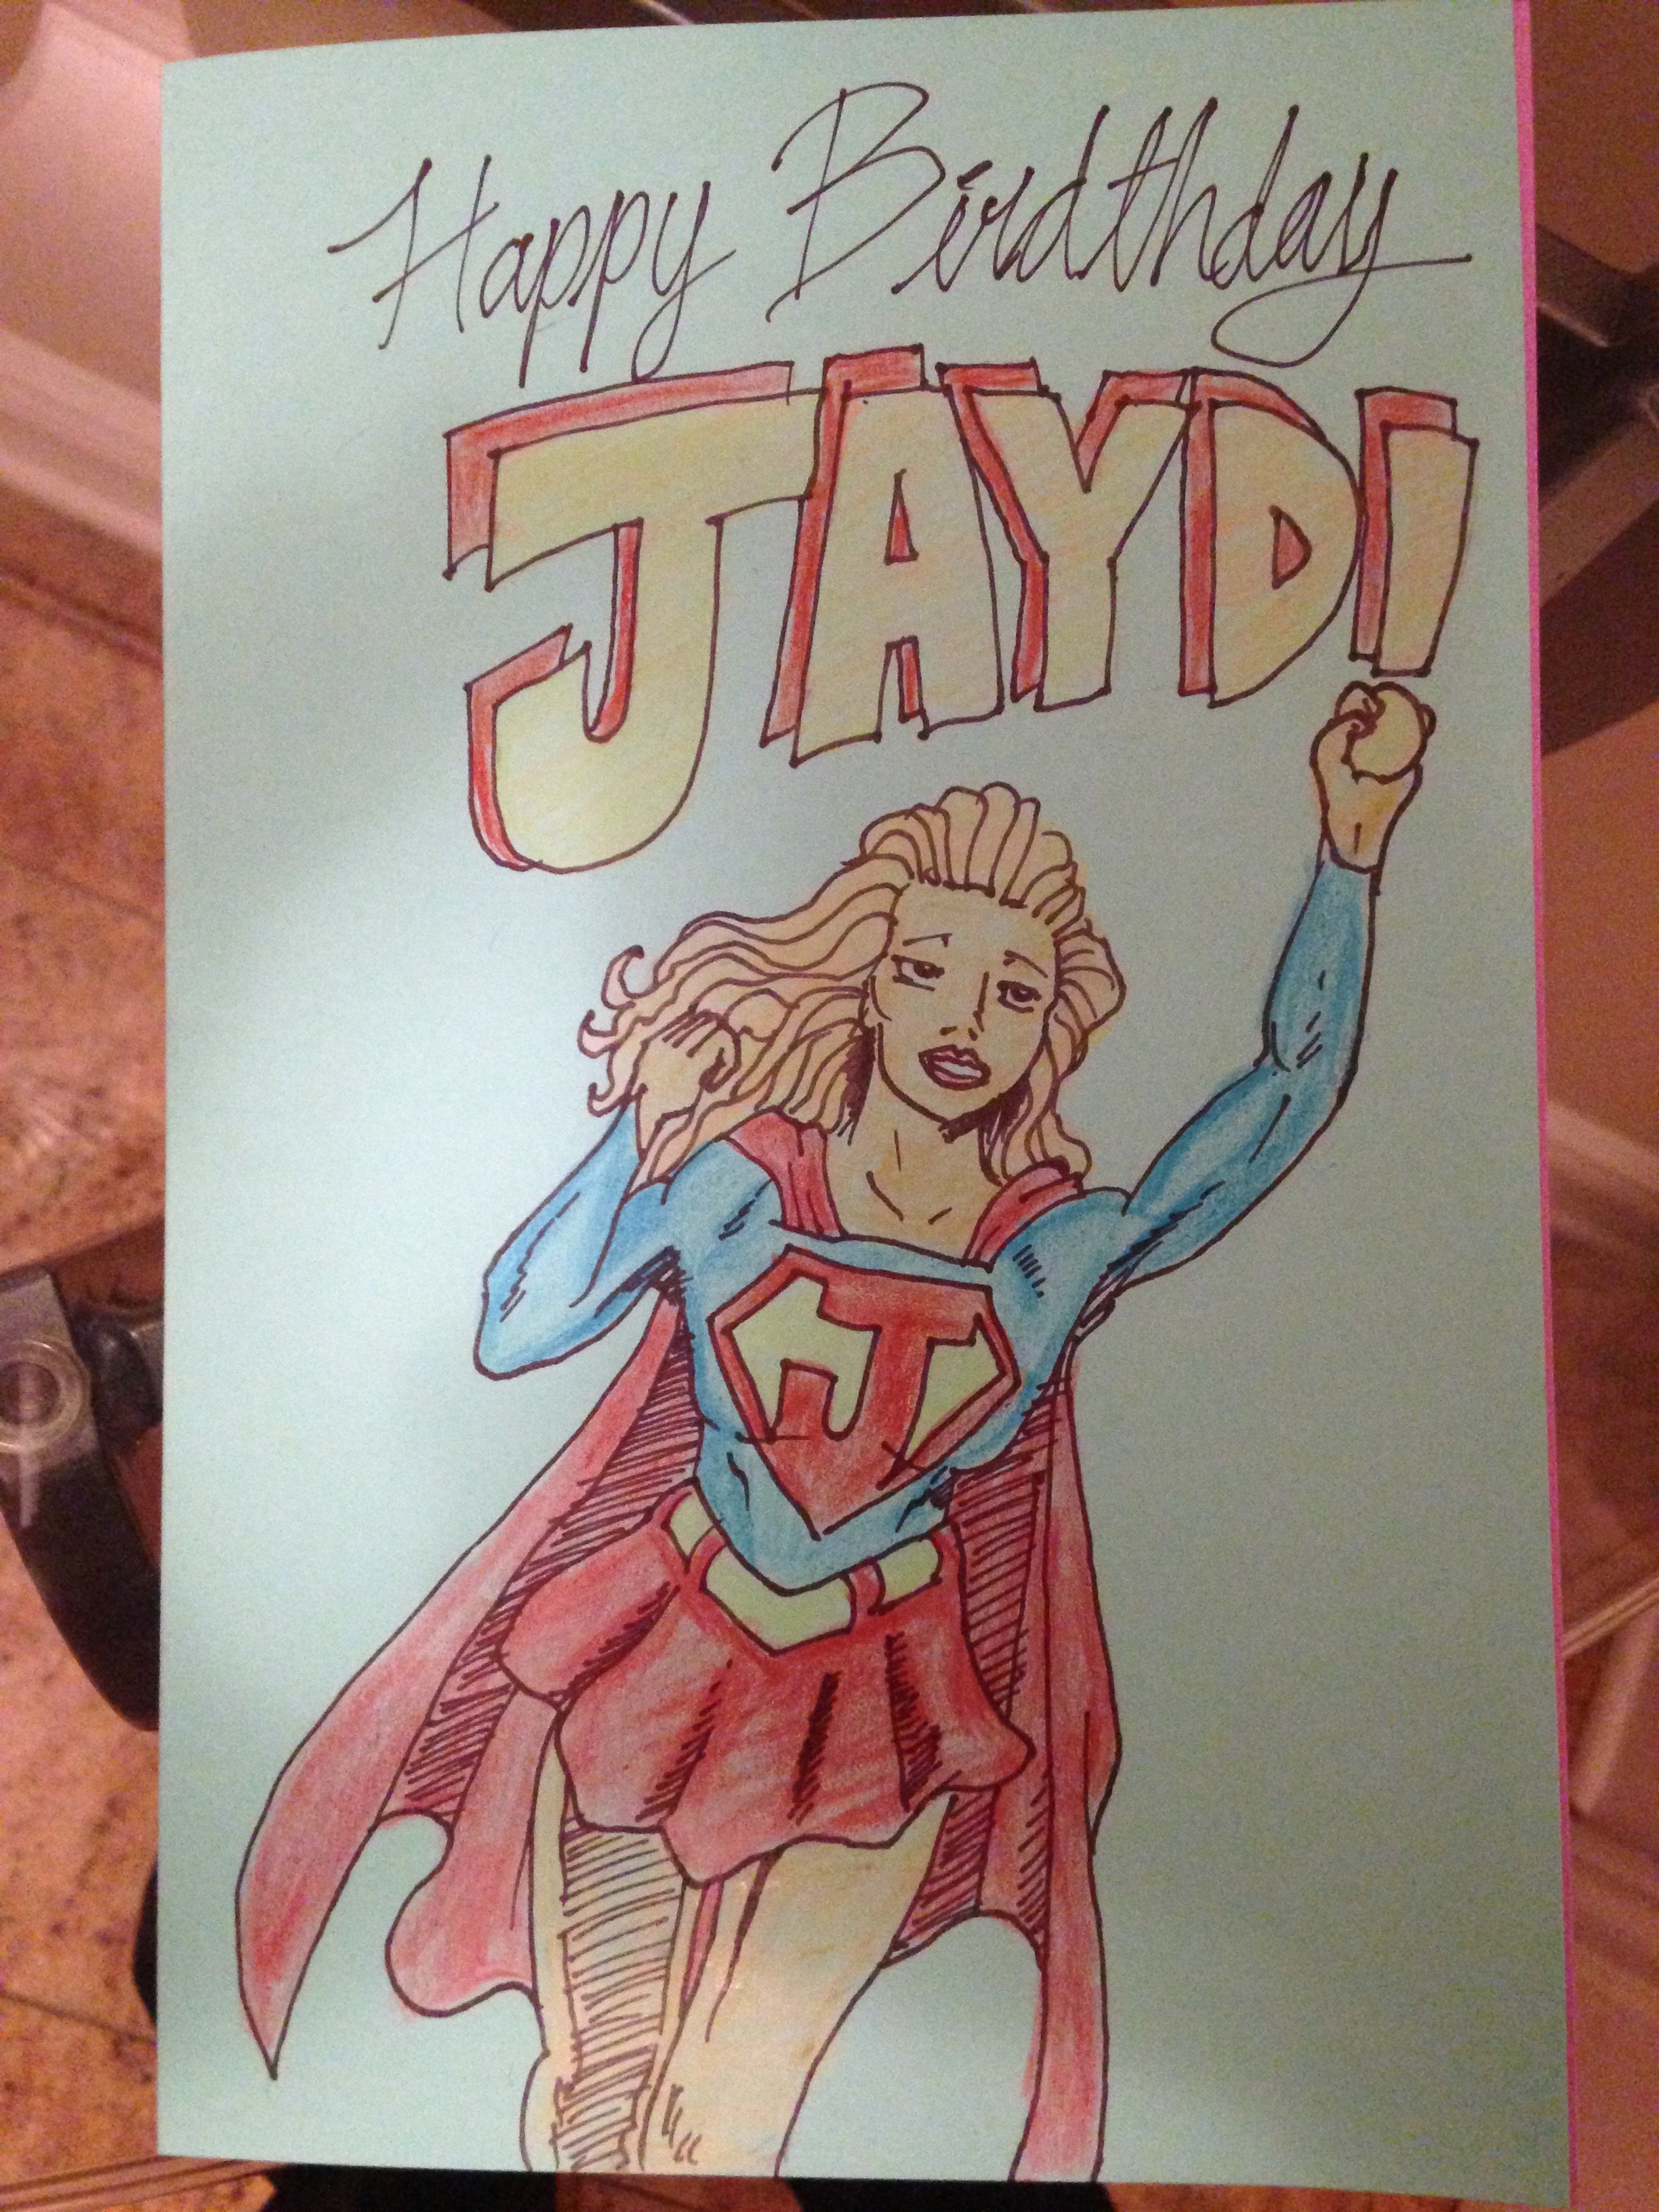 Happy Birdthday
JAYDI
J